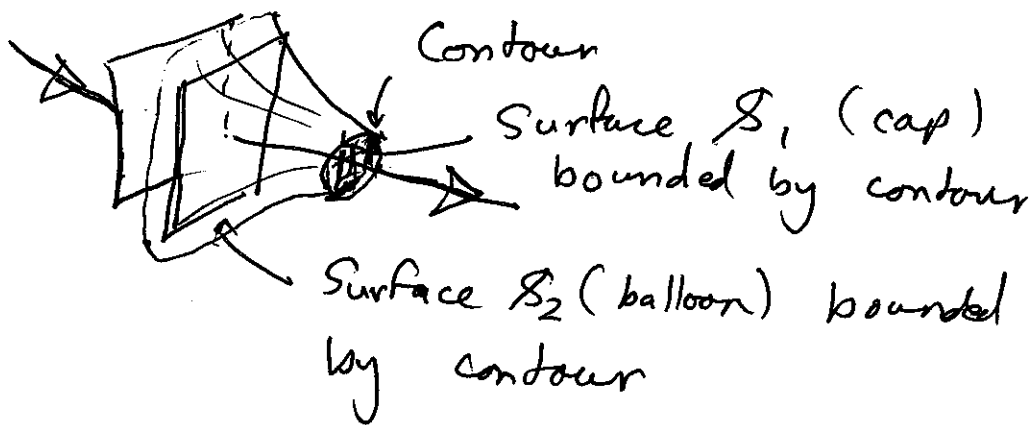 Contour
Surface S₁ (cap)
bounded by contour
Surface S₂ (balloon) bounded
by contour